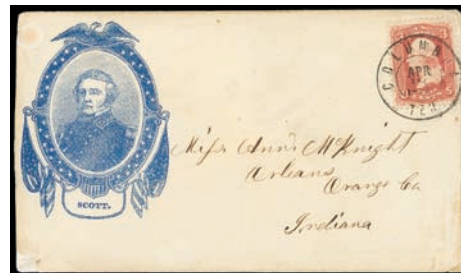 SCOTT.
COLUMBIA
APR
TEN
3
Miss Anna McKnight
Orleans
Orange Co
Indiana